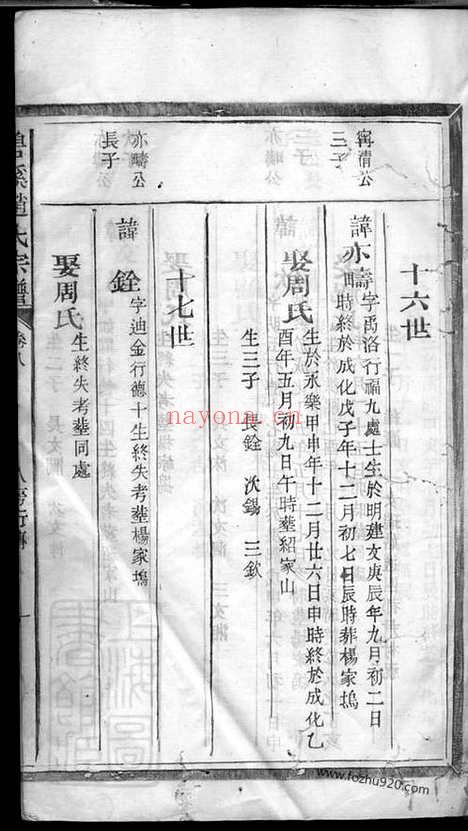 十六世
甯清公
三子
諱亦疇字禹洛行福九處士生於明建文庚辰年九月初二日
時終於成化戊子年十二月初七日辰時葬楊家塢
娶周氏生於永樂甲申年十二月廿六日申時終於成化乙
酉年五月初九日午時塟紹家山
生三子 長銓 次錫 三欽
十七世
亦疇公
長子
諱銓字迪金行德十生終失考塟楊家塢
娶周氏生終失考塟同處
趙氏宗譜 卷八
nayona.cn
www.fozhu920.com